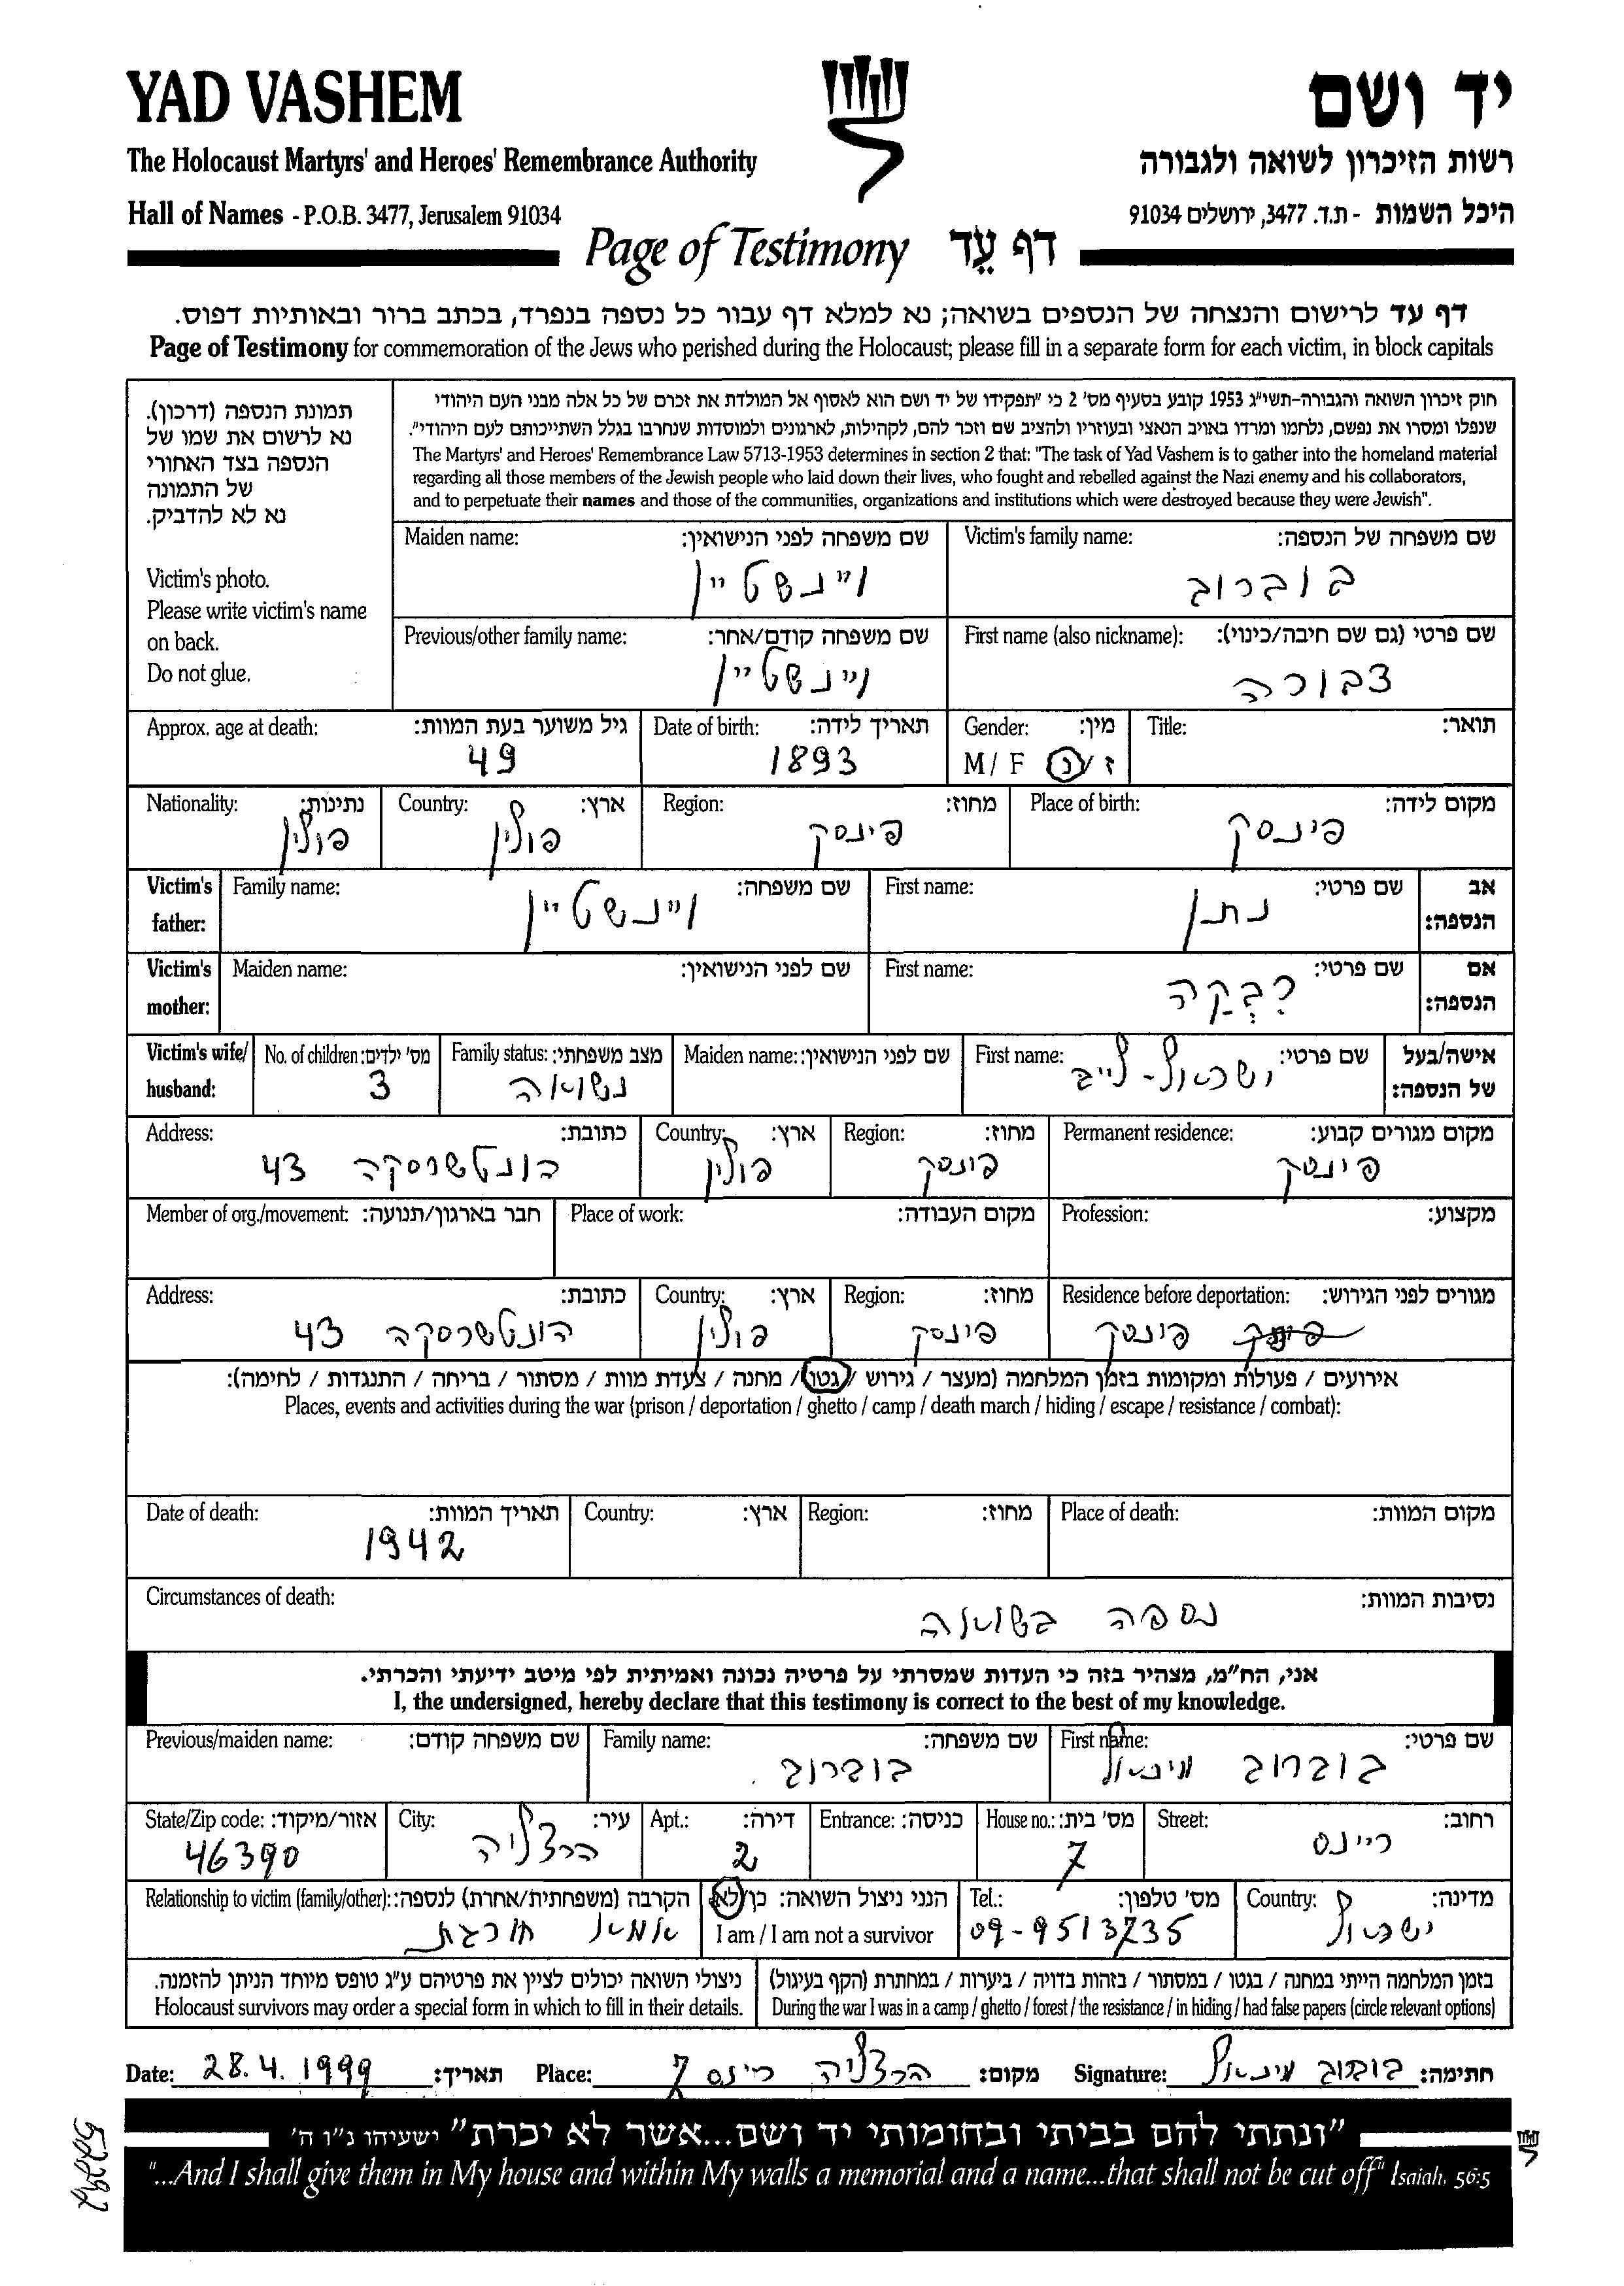 YAD VASHEM יד ושם
The Holocaust Martyrs' and Heroes' Remembrance Authority רשות הזיכרון לשואה ולגבורה
Hall of Names - P.O.B. 3477, Jerusalem 91034 היכל השמות - ת.ד. 3477, ירושלים 91034
Page of Testimony דף עֵד
דף עד לרישום והנצחה של הנספים בשואה; נא למלא דף עבור כל נספה בנפרד, בכתב ברור ובאותיות דפוס.
Page of Testimony for commemoration of the Jews who perished during the Holocaust; please fill in a separate form for each victim, in block capitals
תמונת הנספה (דרכון).
נא לרשום את שמו של
הנספה בצד האחורי
של התמונה
נא לא להדביק.
Victim's photo.
Please write victim's name
on back.
Do not glue.
חוק זיכרון השואה והגבורה-תשי"ג 1953 קובע בסעיף מס' 2 כי "תפקידו של יד ושם הוא לאסוף אל המולדת את זכרם של כל אלה מבני העם היהודי
שנפלו ומסרו את נפשם, נלחמו ומרדו באויב הנאצי ובעוזריו ולהציב שם וזכר להם, לקהילות, לארגונים ולמוסדות שנחרבו בגלל השתייכותם לעם היהודי".
The Martyrs' and Heroes' Remembrance Law 5713-1953 determines in section 2 that: "The task of Yad Vashem is to gather into the homeland material
regarding all those members of the Jewish people who laid down their lives, who fought and rebelled against the Nazi enemy and his collaborators,
and to perpetuate their names and those of the communities, organizations and institutions which were destroyed because they were Jewish".
Victim's family name: שם משפחה של הנספה: Maiden name: שם משפחה לפני הנישואין:
בוברוב ויינשטיין
First name (also nickname): שם פרטי (גם שם חיבה/כינוי): Previous/other family name: שם משפחה קודם/אחר:
דבורה ויינשטיין
Title: תואר: Gender: מין: Date of birth: תאריך לידה: Approx. age at death: גיל משוער בעת המוות:
M / F ז / נ 1893 49
Place of birth: מקום לידה: Region: מחוז: Country: ארץ: Nationality: נתינות:
פינסק פינסק פולין פולין
Victim's father: אב הנספה: First name: שם פרטי: Family name: שם משפחה:
נתן ויינשטיין
Victim's mother: אם הנספה: First name: שם פרטי: Maiden name: שם לפני הנישואין:
רִבְקָה
Victim's wife/husband: אישה/בעל של הנספה: First name: שם פרטי: Maiden name: שם לפני הנישואין: Family status: מצב משפחתי: No. of children: מס' ילדים:
ישראל-לייב נשואה 3
Permanent residence: מקום מגורים קבוע: Region: מחוז: Country: ארץ: Address: כתובת:
פינסק פינסק פולין 43
Profession: מקצוע: Place of work: מקום העבודה: Member of org./movement: חבר בארגון/תנועה:
Residence before deportation: מגורים לפני הגירוש: Region: מחוז: Country: ארץ: Address: כתובת:
פינסק פינסק פולין 43
אירועים / פעולות ומקומות בזמן המלחמה (מעצר / גירוש / גטו / מחנה / צעדת מוות / מסתור / בריחה / התנגדות / לחימה):
Places, events and activities during the war (prison / deportation / ghetto / camp / death march / hiding / escape / resistance / combat):
Place of death: מקום המוות: Region: מחוז: Country: ארץ: Date of death: תאריך המוות:
1942
Circumstances of death: נסיבות המוות:
נספה בשואה
אני, הח"מ, מצהיר בזה כי העדות שמסרתי על פרטיה נכונה ואמיתית לפי מיטב ידיעתי והכרתי.
I, the undersigned, hereby declare that this testimony is correct to the best of my knowledge.
First name: שם פרטי: Family name: שם משפחה: Previous/maiden name: שם משפחה קודם:
בוברוב מיכאל בוברוב
Street: רחוב: House no.: מס' בית: Entrance: כניסה: Apt.: דירה: City: עיר: State/Zip code: אזור/מיקוד:
ריינס 7 2 הרצליה 46390
Country: מדינה: Tel.: מס' טלפון: הנני ניצול השואה: כן / לא Relationship to victim (family/other): הקרבה (משפחתית/אחרת) לנספה:
ישראל 09-9513735 I am / I am not a survivor אמא חורגת
בזמן המלחמה הייתי במחנה / בגטו / במסתור / בזהות בדויה / ביערות / במחתרת (הקף בעיגול) ניצולי השואה יכולים לציין את פרטיהם ע"ג טופס מיוחד הניתן להזמנה.
During the war I was in a camp / ghetto / forest / the resistance / in hiding / had false papers (circle relevant options) Holocaust survivors may order a special form in which to fill in their details.
Date: 28.4.1999 תאריך: Place: הרצליה ריינס 7 מקום: Signature: בוברוב מיכאל חתימה:
"ונתתי להם בביתי ובחומותי יד ושם...אשר לא יכרת" ישעיהו נ"ו ה'
"...And I shall give them in My house and within My walls a memorial and a name...that shall not be cut off" Isaiah, 56:5